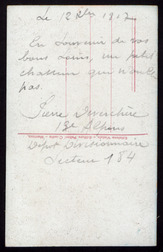 Le 12 Xbre 1917
En souvenir de vos
bons soins, un petit
chasseur qui n'oublie
pas.
Pierre
13e Alpins
Dépôt Divisionnaire
Secteur 184